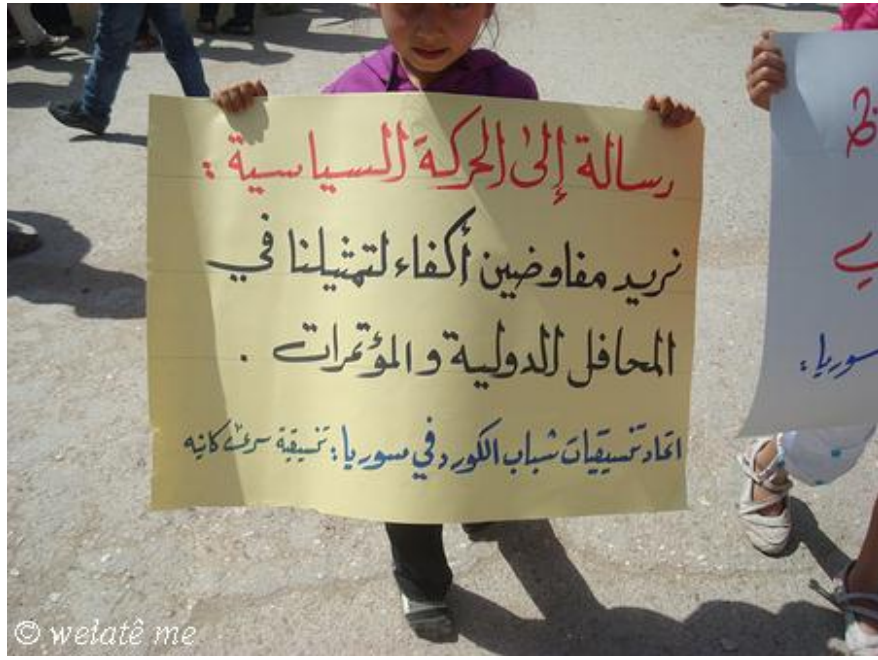 رسالة إلى الحركة السياسية :
نريد مفاوضين أكفاء لتمثيلنا في
المحافل الدولية و المؤتمرات .
اتحاد تنسيقيات شباب الكورد في سوريا : تنسيقية سري كانيه
سوريا :
© welatê me